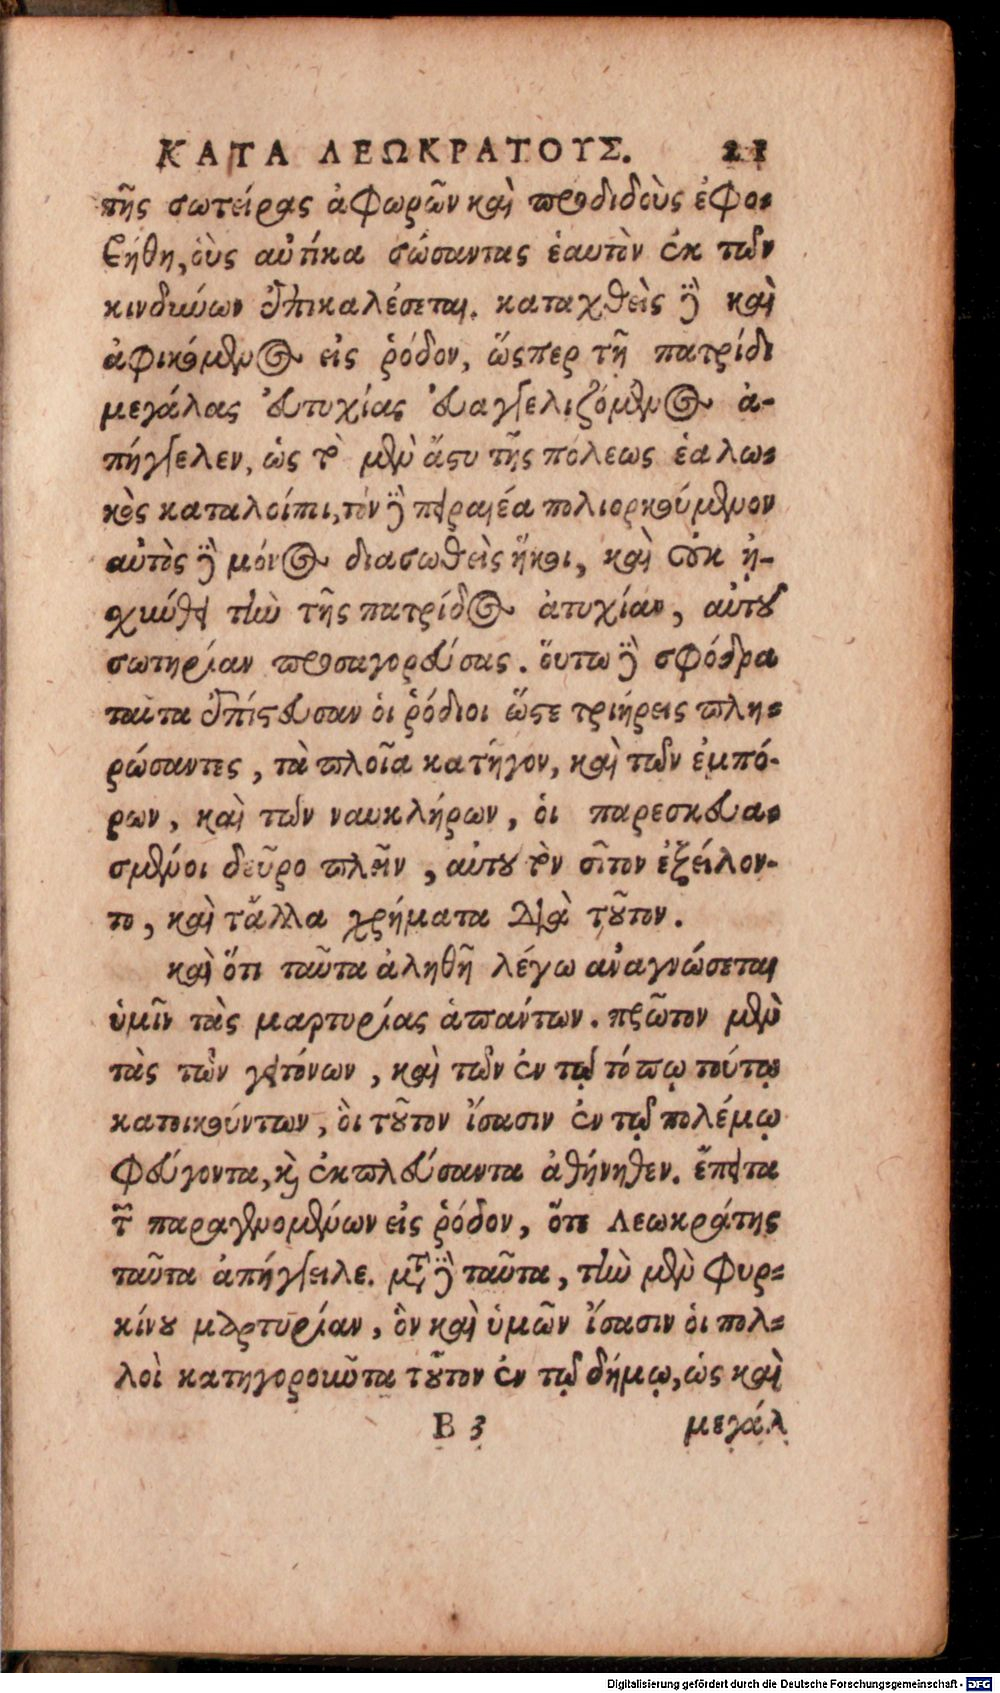 ΚΑΤΑ ΛΕΩΚΡΑΤΟΥΣ. 21
τῆς σωτείρας ἀφωρῶν καὶ προδιδοὺς ἐφο-
βήθη, οὓς αὐτίκα σώσαντας ἑαυτὸν ἐκ τῶν
κινδύνων ἐπικαλέσεται. καταχθεὶς δὲ καὶ
ἀφικόμενος εἰς ῥόδον, ὥσπερ τῇ πατρίδι
μεγάλας εὐτυχίας εὐαγγελιζόμενος ἀ-
πήγγελεν, ὡς τὸ μὲν ἄστυ τῆς πόλεως ἑαλω-
κὸς καταλοίποι, τὸν δὲ πειραιέα πολιορκούμενον
αὐτὸς δὲ μόνος διασωθεὶς ἥκοι, καὶ οὐκ ᾐ-
σχύνθη τὴν τῆς πατρίδος ἀτυχίαν, αὐτοῦ
σωτηρίαν προσαγορεύσας. οὕτω δὲ σφόδρα
ταῦτα ἐπίστευσαν οἱ ῥόδιοι ὥστε τριήρεις πλη-
ρώσαντες, τὰ πλοῖα κατήγον, καὶ τῶν ἐμπό-
ρων, καὶ τῶν ναυκλήρων, οἱ παρεσκευα-
σμένοι δεῦρο πλεῖν, αὐτοῦ τὸν σῖτον ἐξείλον-
το, καὶ τἄλλα χρήματα διὰ τοῦτον.
καὶ ὅτι ταῦτα ἀληθῆ λέγω ἀναγνώσεται
ὑμῖν τὰς μαρτυρίας ἁπάντων. πρῶτον μὲν
τὰς τῶν γειτόνων, καὶ τῶν ἐν τῷ τόπῳ τούτῳ
κατοικούντων, οἳ τοῦτον ἴσασιν ἐν τῷ πολέμῳ
φεύγοντα, καὶ ἐκπλεύσαντα ἀθήνηθεν. ἔπειτα
τῶν παραγενομένων εἰς ῥόδον, ὅτε Λεωκράτης
ταῦτα ἀπήγγειλε. μετὰ δὲ ταῦτα, τὴν μὲν Φυρ-
κίνου μαρτυρίαν, ὃν καὶ ὑμῶν ἴσασιν οἱ πολ-
λοὶ κατηγοροῦντα τοῦτον ἐν τῷ δήμῳ, ὡς καὶ
B 3 μεγάλ
Digitalisierung gefördert durch die Deutsche Forschungsgemeinschaft - DFG